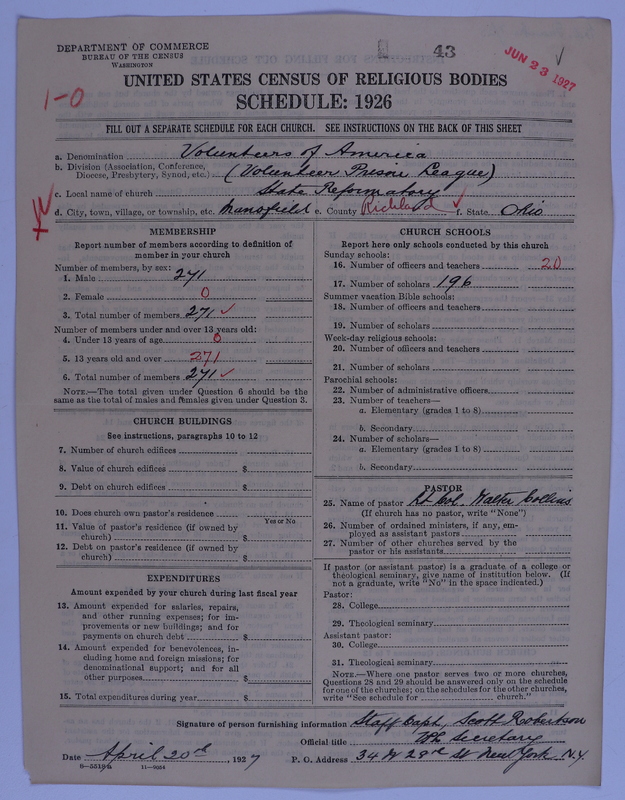 DEPARTMENT OF COMMERCE
BUREAU OF THE CENSUS
WASHINGTON
43
JUN 23 1927
1-0
UNITED STATES CENSUS OF RELIGIOUS BODIES
SCHEDULE: 1926
FILL OUT A SEPARATE SCHEDULE FOR EACH CHURCH. SEE INSTRUCTIONS ON THE BACK OF THIS SHEET
a. Denomination Volunteers of America
b. Division (Association, Conference, Diocese, Presbytery, Synod, etc.) (Volunteer Prison League)
c. Local name of church State Reformatory
d. City, town, village, or township, etc. Mansfield e. County Richland f. State Ohio
MEMBERSHIP
Report number of members according to definition of
member in your church
Number of members, by sex:
1. Male 271
2. Female 0
3. Total number of members 271
Number of members under and over 13 years old:
4. Under 13 years of age 0
5. 13 years old and over 271
6. Total number of members 271
NOTE.—The total given under Question 6 should be
same as the total of males and females given under Question 3.
CHURCH BUILDINGS
See instructions, paragraphs 10 to 12
7. Number of church edifices
8. Value of church edifices $
9. Debt on church edifices $
10. Does church own pastor's residence
Yes or No
11. Value of pastor's residence (if owned by
church) $
12. Debt on pastor's residence (if owned by
church) $
EXPENDITURES
Amount expended by your church during last fiscal year
13. Amount expended for salaries, repairs,
and other running expenses; for im-
provements or new buildings; and for
payments on church debt $
14. Amount expended for benevolences, in-
cluding home and foreign missions; for
denominational support; and for all
other purposes $
15. Total expenditures during year $
CHURCH SCHOOLS
Report here only schools conducted by this church
Sunday schools:
16. Number of officers and teachers 20
17. Number of scholars 196
Summer vacation Bible schools:
18. Number of officers and teachers
19. Number of scholars
Week-day religious schools:
20. Number of officers and teachers
21. Number of scholars
Parochial schools:
22. Number of administrative officers
23. Number of teachers—
a. Elementary (grades 1 to 8)
b. Secondary
24. Number of scholars—
a. Elementary (grades 1 to 8)
b. Secondary
PASTOR
25. Name of pastor Lt Col. Walter Collins
(If church has no pastor, write "None")
26. Number of ordained ministers, if any, em-
ployed as assistant pastors
27. Number of other churches served by the
pastor or his assistants
If pastor (or assistant pastor) is a graduate of a college or
theological seminary, give name of institution below. (If
not a graduate, write "No" in the space indicated.)
Pastor:
28. College
29. Theological seminary
Assistant pastor:
30. College
31. Theological seminary
NOTE.—Where one pastor serves two or more churches,
Questions 28 and 29 should be answered only on the schedule
for one of the churches; on the schedules for the other churches,
write "See schedule for church."
Signature of person furnishing information Staff Capt. Scott Robertson
Official title Secretary
Date April 20th, 1927 P. O. Address 34 W 28th St New York N.Y.
8—5518a 11—9034